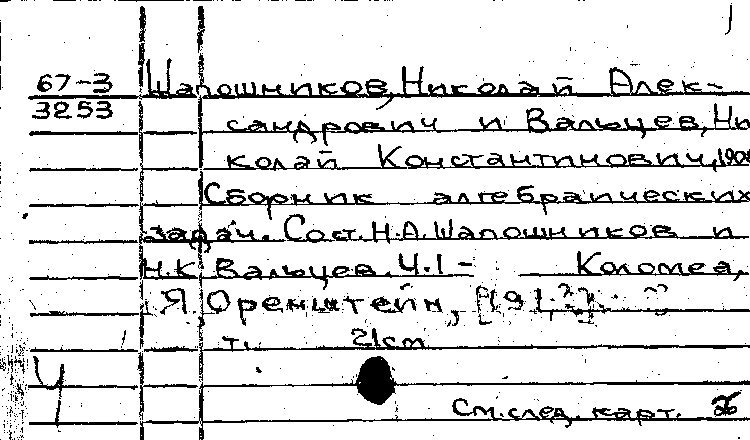 67-3 Шапошников, Николай Алек-
3253 сандрович и Вальцев, Ни-
колай Константинович,
Сборник алгебраических
задач. Сост. Н.А. Шапошников и
Н.К. Вальцев. Ч.1- Коломея,
Я. Оренштейн,
т. 21cm
Ч
См. след. карт.